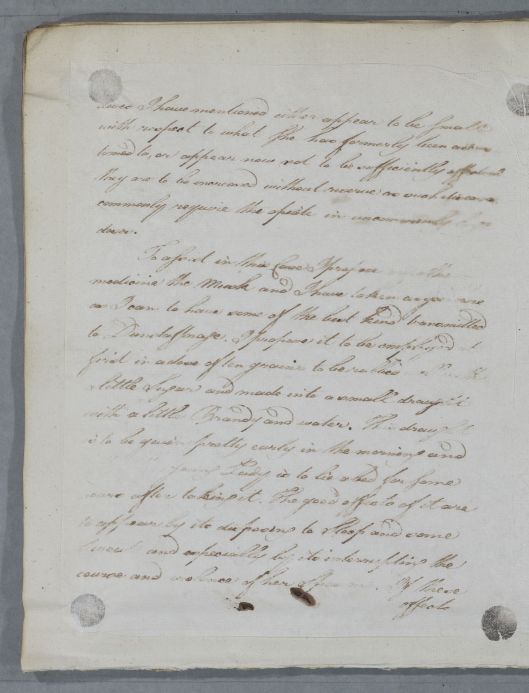 doses I have mentioned either appear to be small
with respect to what she has formerly been accus
tomed to, or appear now not to be sufficiently effectual
they are to be increased without reserve as such diseases
commonly require the opiate in uncommonly large
doses.
To assist in this Case I propose
medicine the Musk and I have taken
as I can to have some of the best kind transmitted
to Dunstaffnage. I propose it to be employed at
first in a dose of ten grains to be rubbed
little Sugar and made into a small draught
with a little Brandy and water. This draught
is to be given pretty early in the morning and
young Lady is to lie abed for some
hours after taking it. The good effects of it are
to appear by its disposing to sleep and some
Sweat and especially by its interrupting the
course and violence of her . If these
effects